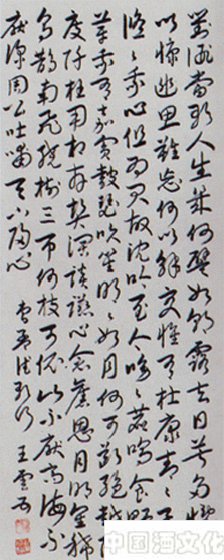 對酒當歌人生幾何譬如朝露去日苦多慨當
以慷憂思難忘何以解憂惟有杜康青青子衿
悠悠我心但為君故沈吟至今呦呦鹿鳴食野之
苹我有嘉賓鼓瑟吹笙明明如月何可斷絕越陌
度阡枉用相存契闊談讌心念舊恩月明星稀
烏鵲南飛繞樹三匝何枝可依山不厭高海不
厭深周公吐哺天下歸心 曹孟德短歌行 王雲
中国酒文化